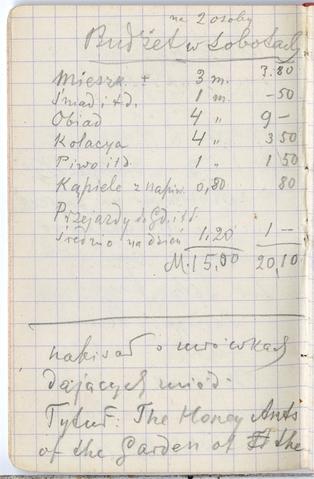 na 2 osoby
Budżet w Sobotach
Mieszk. + 3 m. 3.80
Śniad. i t.d. 1 m. -50
Obiad 4 „ 9 -
Kolacya 4 „ 3 50
Piwo i t.d. 1 „ 1 50
Kąpiele z napiw. 0,80 80
Przejazdy do Gd. i t.d.
średnio na dzień 1.20 1 --
M. 15,00 20,10
napisał o mrówkach
dających miód.
Tytuł: The Honey Ants
of the Garden of the